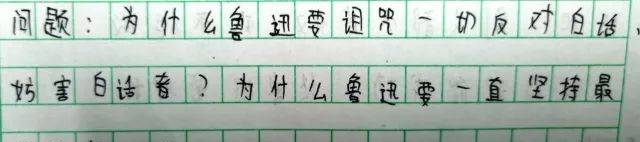 问题：为什么鲁迅要诅咒一切反对白话，
妨害白话者？为什么鲁迅要一直坚持最